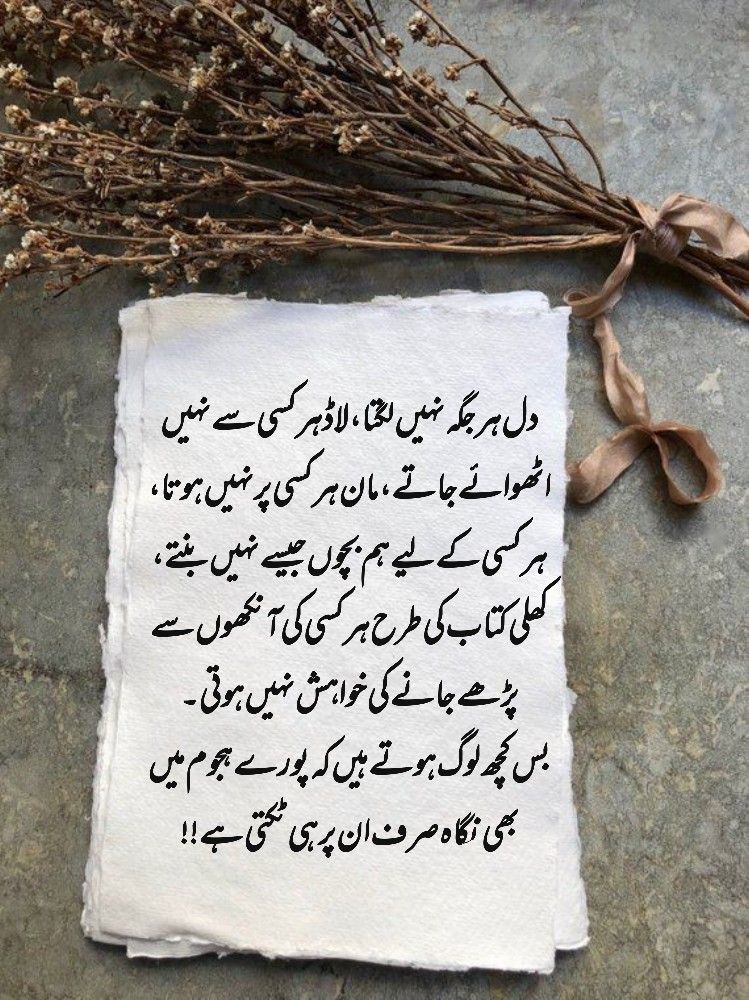 دل ہر جگہ نہیں لگتا، لاڈ ہر کسی سے نہیں
اٹھوائے جاتے ، مان ہر کسی پر نہیں ہوتا،
ہر کسی کے لیے ہم بچوں جیسے نہیں بنتے ،
کھلی کتاب کی طرح ہر کسی کی آنکھوں سے
پڑھے جانے کی خواہش نہیں ہوتی۔
بس کچھ لوگ ہوتے ہیں کہ پورے ہجوم میں
بھی نگاہ صرف ان پر ہی ٹکتی ہے!!